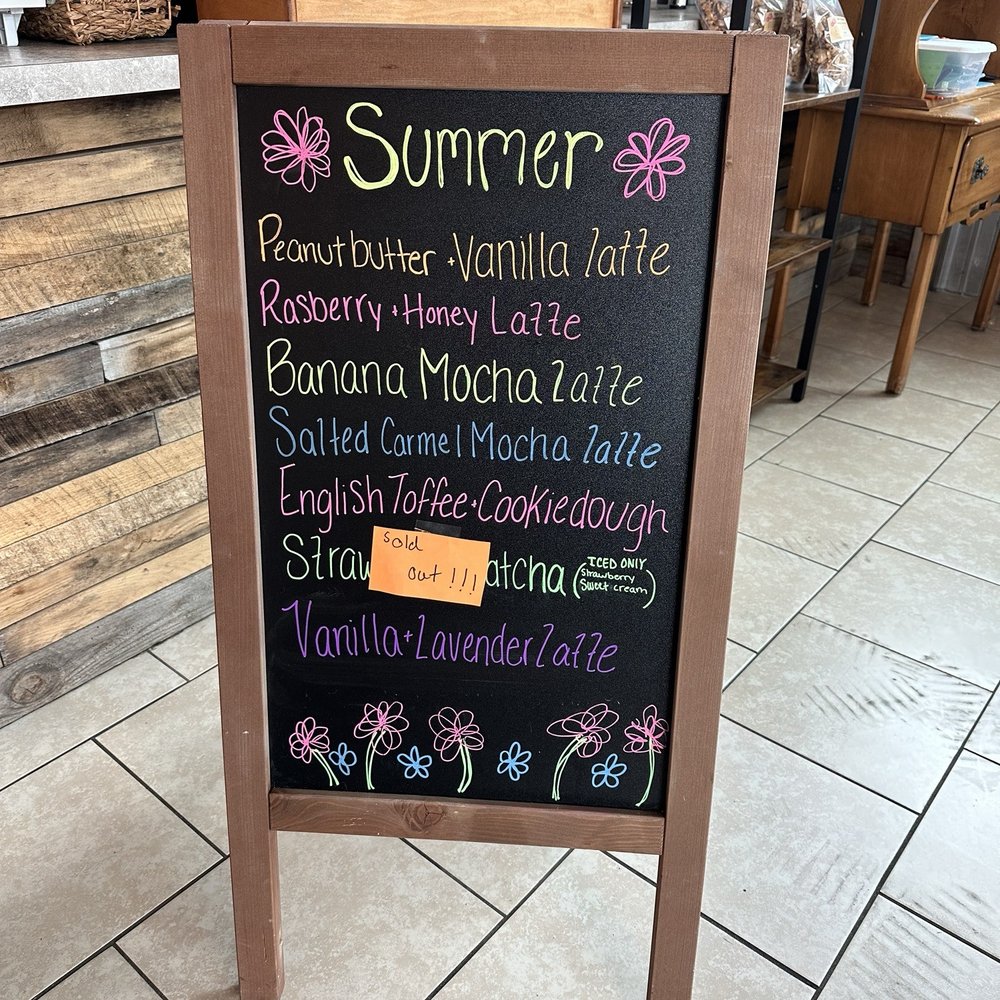 Summer
Peanutbutter + Vanilla latte
Rasberry + Honey Latte
Banana Mocha latte
Salted Carmel Mocha latte
English Toffee + Cookiedough
Straw
sold
out !!!
atcha
(ICED ONLY
Strawberry
Sweet cream)
Vanilla + Lavender latte